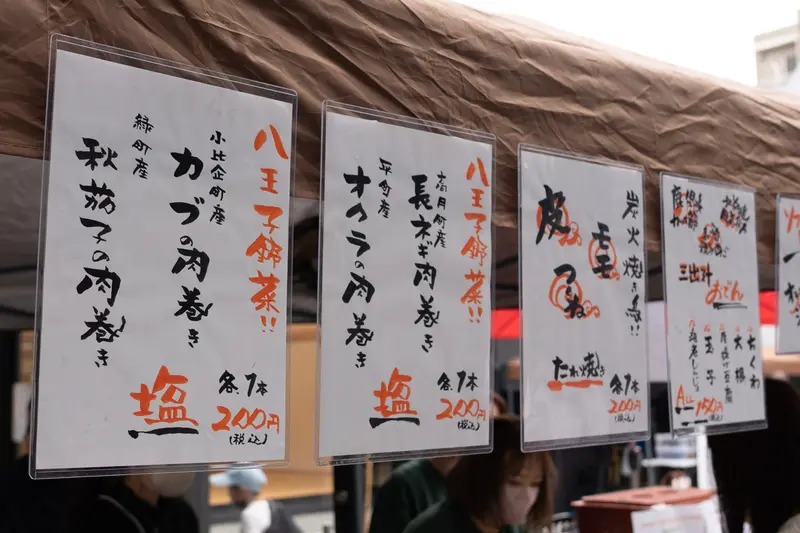 八王子錦菜!!
小比企町産
カブの肉巻き
緑町産
秋茄子の肉巻き
塩
各1本
200円
(税込)
八王子錦菜!!
高月町産
長ネギ肉巻き
平町産
オクラの肉巻き
塩
各1本
200円
(税込)
炭火焼き
皮
たれ焼き
各1本
200円
(税込)
三出汁
おでん
ちくわ
大根
玉子
ALL
150円
(税込)